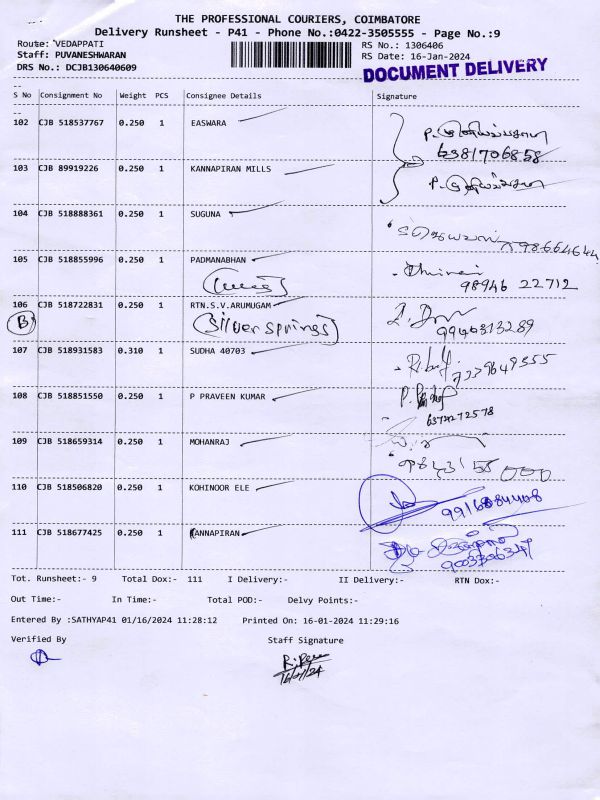 THE PROFESSIONAL COURIERS, COIMBATORE
Delivery Runsheet - P41 - Phone No.:0422-3505555 - Page No.:9
Route: VEDAPPATI RS No.: 1306406
Staff: PUVANESHWARAN RS Date: 16-Jan-2024
DRS No.: DCJB130640609 DOCUMENT DELIVERY
S No Consignment No Weight PCS Consignee Details Signature
102 CJB 518537767 0.250 1 EASWARA
6381706858
103 CJB 89919226 0.250 1 KANNAPIRAN MILLS
104 CJB 518888361 0.250 1 SUGUNA
105 CJB 518855996 0.250 1 PADMANABHAN
98946 22712
106 CJB 518722831 0.250 1 RTN.S.V.ARUMUGAM
B (Silver springs) 9940313289
107 CJB 518931583 0.310 1 SUDHA 40703
108 CJB 518851550 0.250 1 P PRAVEEN KUMAR
109 CJB 518659314 0.250 1 MOHANRAJ
110 CJB 518506820 0.250 1 KOHINOOR ELE
111 CJB 518677425 0.250 1 KANNAPIRAN
Tot. Runsheet:- 9 Total Dox:- 111 I Delivery:- II Delivery:- RTN Dox:-
Out Time:- In Time:- Total POD:- Delvy Points:-
Entered By :SATHYAP41 01/16/2024 11:28:12 Printed On: 16-01-2024 11:29:16
Verified By Staff Signature